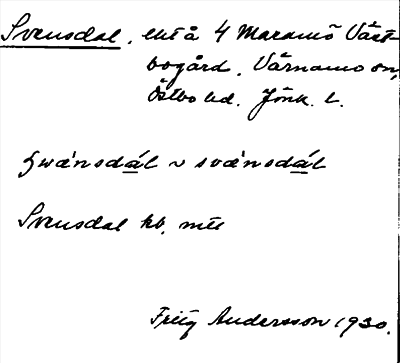 Svensdal, lht å 4 Maramö Väst-
bogård, Värnamo sn,
Östbo hd. Jönk. l.
swä́nsdál ~ svä́nsdál
Svensdal kb, mtl
Fritz Andersson 1930.